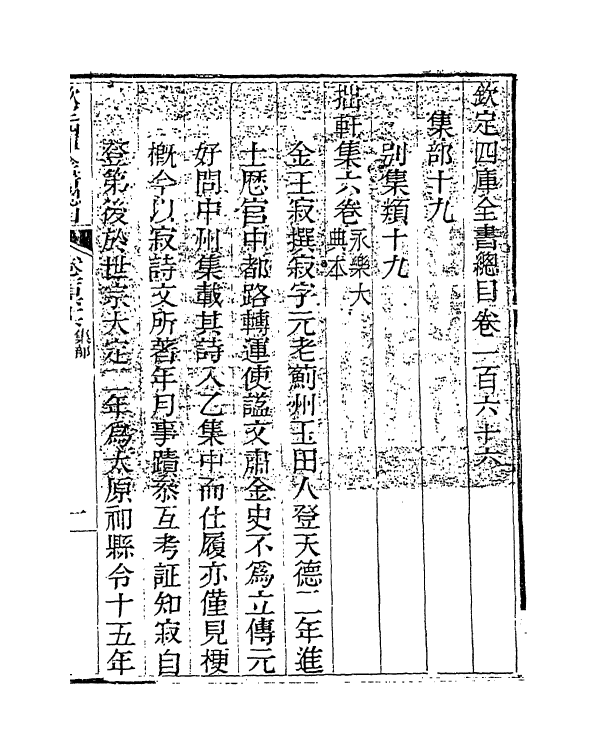 欽定四庫全書總目卷一百六十六
集部十九
別集類十九
拙軒集六卷永樂大典本
金王寂撰寂字元老薊州玉田人登天德二年進
士歷官中都路轉運使諡文肅金史不爲立傳元
好問中州集載其詩入乙集中而仕履亦僅見梗
概今以寂詩文所著年月事蹟叅互考証知寂自
登第後於世宗大定二年爲太原祁縣令十五年
集部
一